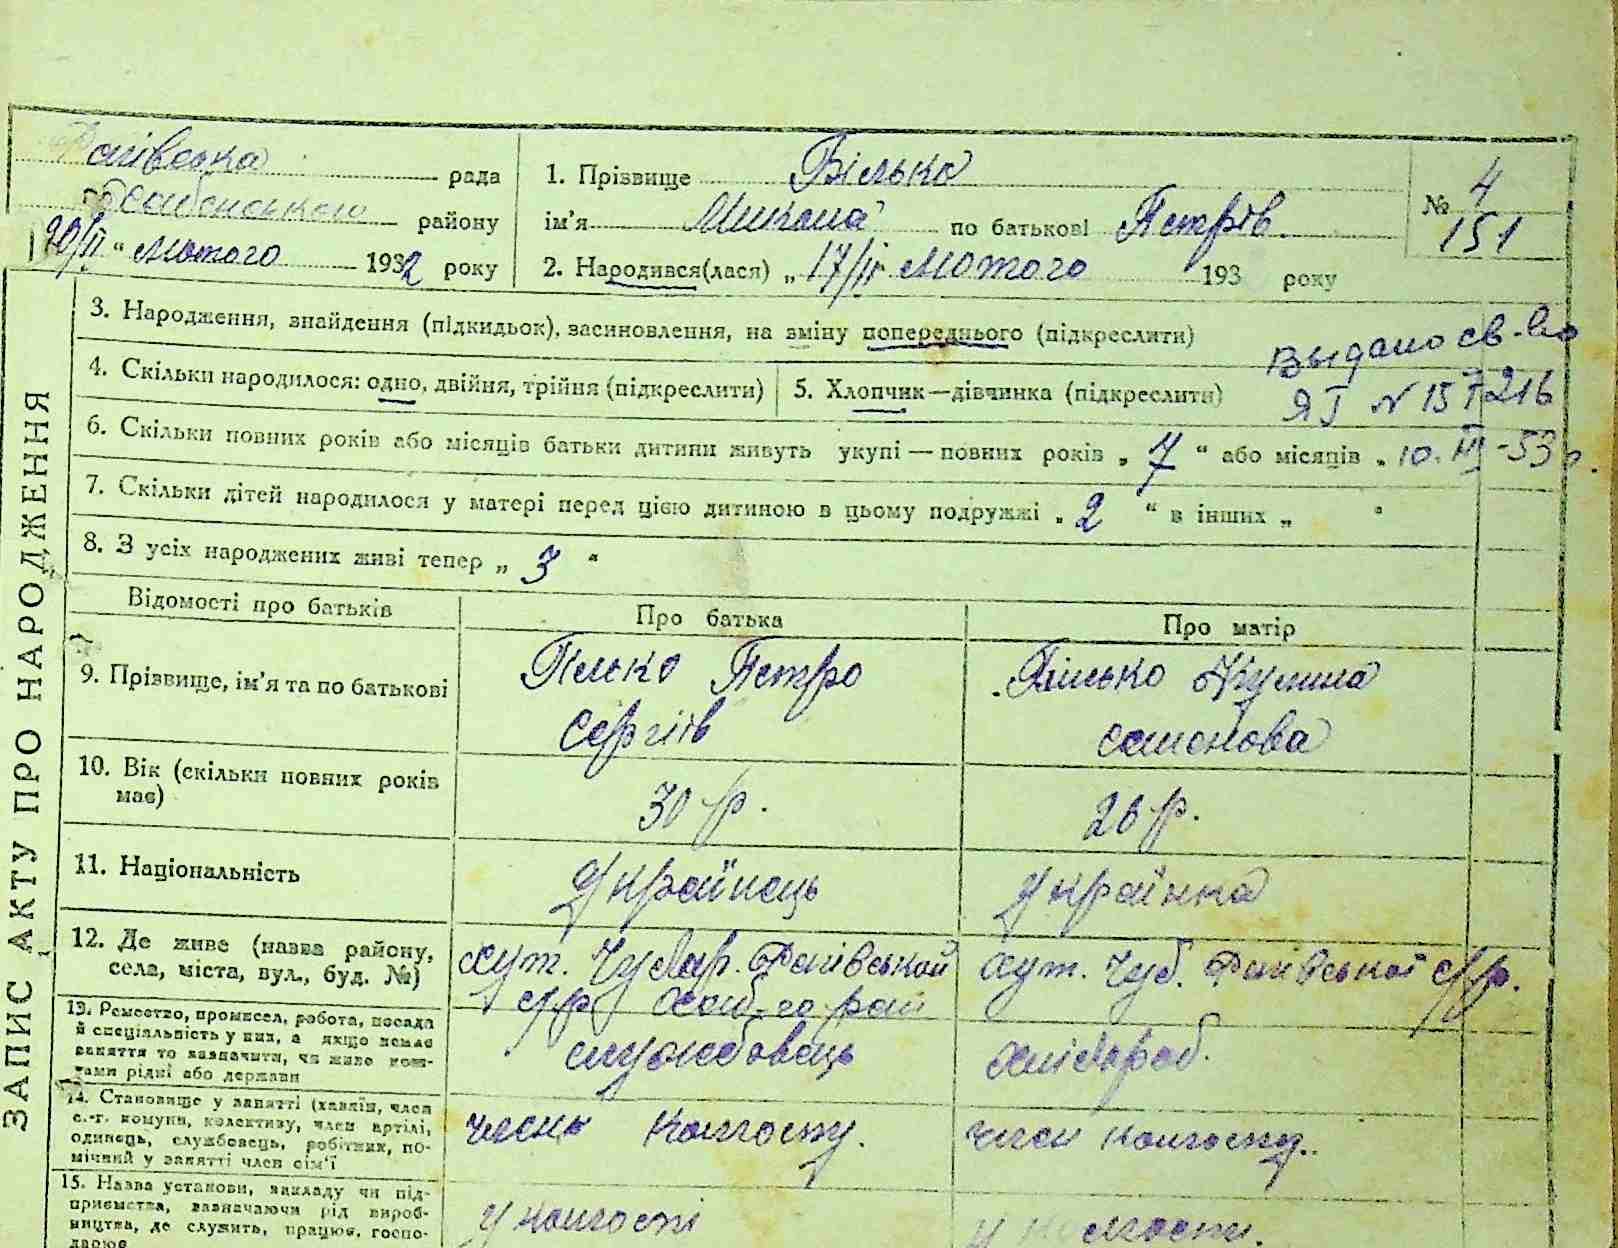 рада
району
20/II " Лютого 1932 року
1. Прізвище Пілько
ім'я Микола по батькові Петрів.
2. Народився(лася) „ 17/II Лютого 193 року
№ 4
151
ЗАПИС АКТУ ПРО НАРОДЖЕННЯ
3. Народження, знайдення (підкидьок), засиновлення, на зміну попереднього (підкреслити)
Выдано св-во
ЯГ N 157216
10.III-53 р.
4. Скільки народилося: одно, двійня, трійня (підкреслити)
5. Хлопчик—дівчинка (підкреслити)
6. Скільки повних років або місяців батьки дитини живуть укупі — повних років „ 7 " або місяців „
7. Скільки дітей народилося у матері перед цією дитиною в цьому подружжі „ 2 " в інших „ "
8. З усіх народжених живі тепер „ 3 "
Відомості про батьків
Про батька
Про матір
9. Прізвище, ім'я та по батькові
Пілько Петро
Сергіїв
Пілько Килина
Семенова
10. Вік (скільки повних років
має)
30 р.
26 р.
11. Національність
Українець
Українка
12. Де живе (назва району,
села, міста, вул., буд. №)
хут. Чубар. Фаївської
с/р рай
хут. Чуб. Фаївської с/р.
13. Ремество, промисел, робота, посада
й спеціяльність у них, а якщо немає
заняття то зазначити, чи живе кош-
тами рідні або держави
службовець
хлібороб.
14. Становище у занятті (хазяїн, член
с.-г. комуни, колективу, член артілі,
одинець, службовець, робітник, по-
мічний у занятті член сім'ї
член колгоспу.
член колгоспу.
15. Назва установи, закладу чи під-
приємства, зазначаючи рід вироб-
ництва, де служить, працює, госпо-
дарює
у колгоспі
у колгоспі.